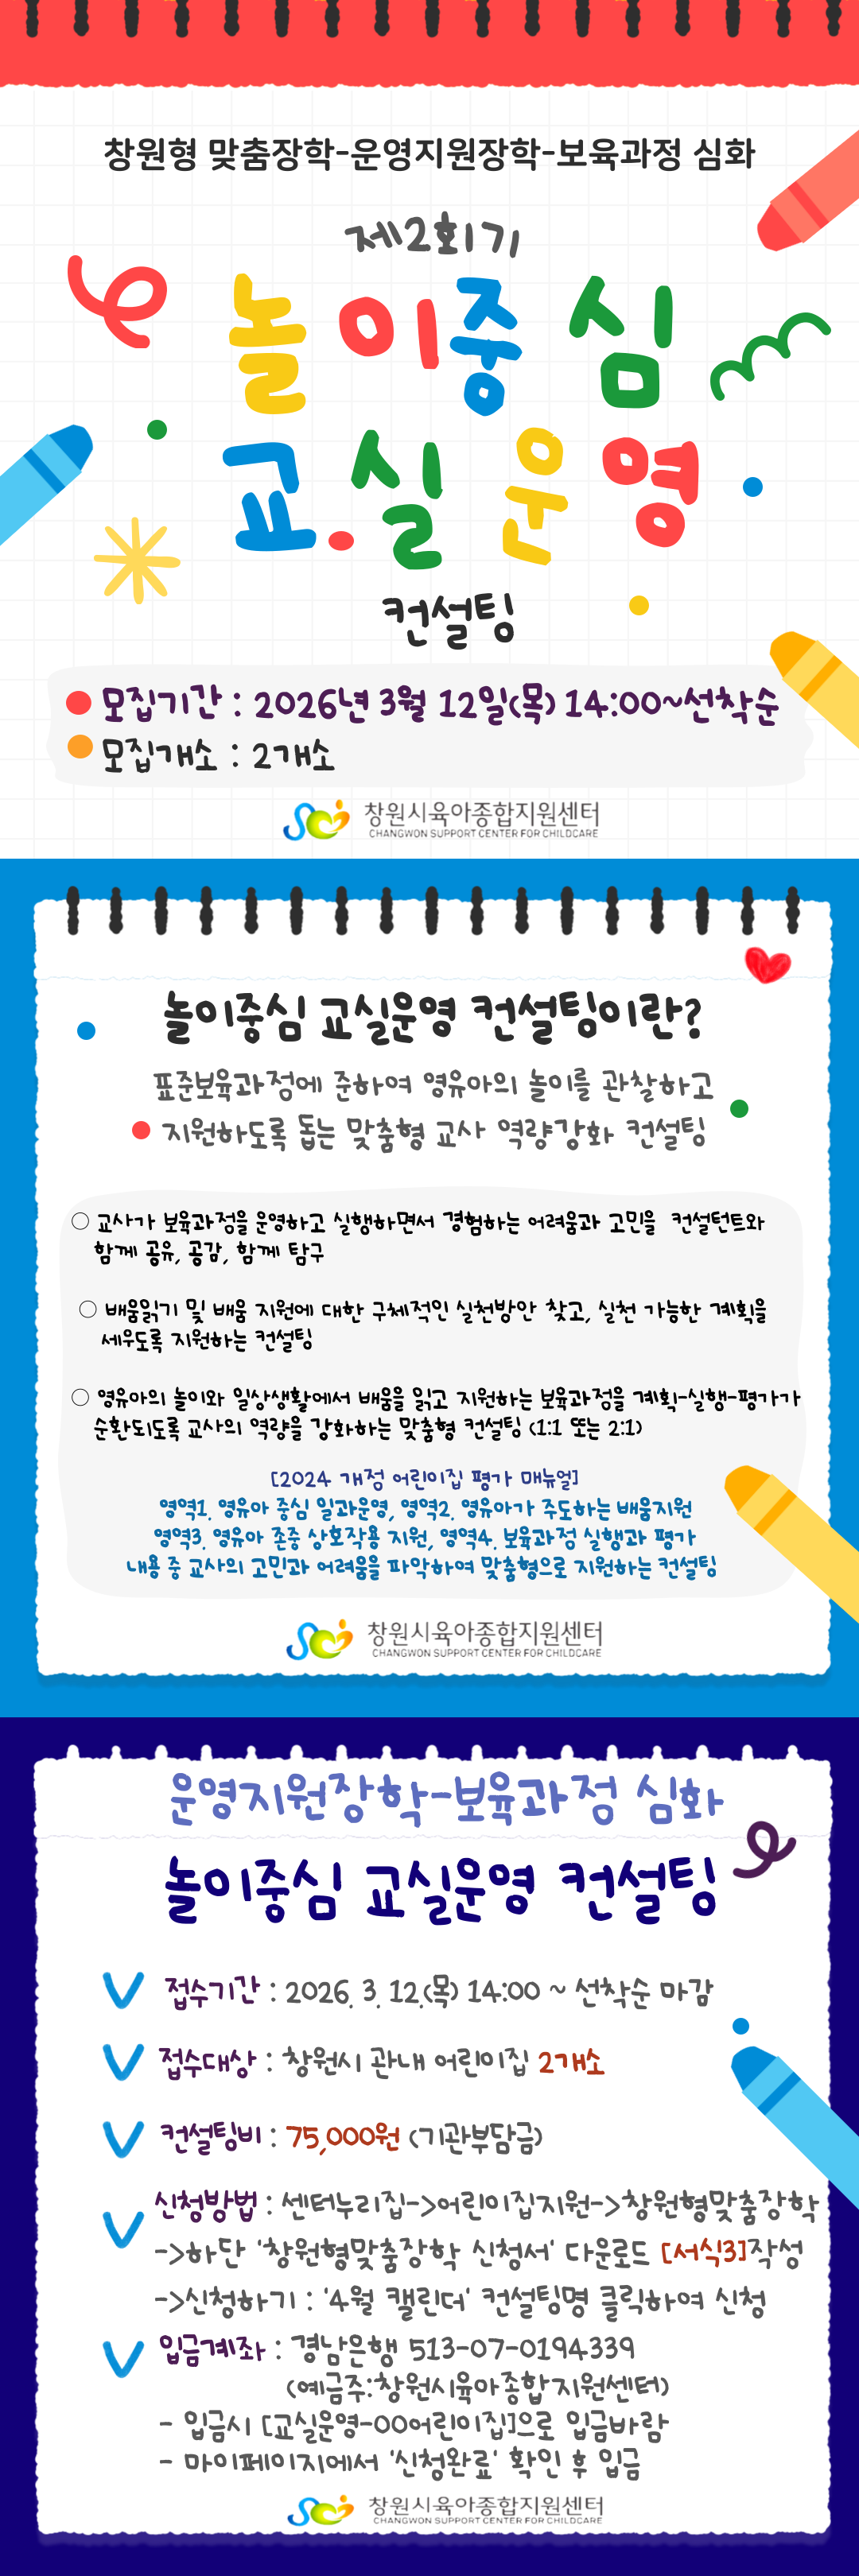 창원형 맞춤장학-운영지원장학-보육과정 심화
제2회기
놀이중심
교실운영
컨설팅
모집기간 : 2026년 3월 12일(목) 14:00~선착순
모집개소 : 2개소
창원시육아종합지원센터
CHANGWON SUPPORT CENTER FOR CHILDCARE
놀이중심 교실운영 컨설팅이란?
표준보육과정에 준하여 영유아의 놀이를 관찰하고
지원하도록 돕는 맞춤형 교사 역량강화 컨설팅
○ 교사가 보육과정을 운영하고 실행하면서 경험하는 어려움과 고민을 컨설턴트와
함께 공유, 공감, 함께 탐구
○ 배움읽기 및 배움 지원에 대한 구체적인 실천방안 찾고, 실천 가능한 계획을
세우도록 지원하는 컨설팅
○ 영유아의 놀이와 일상생활에서 배움을 읽고 지원하는 보육과정을 계획-실행-평가가
순환되도록 교사의 역량을 강화하는 맞춤형 컨설팅 (1:1 또는 2:1)
[2024 개정 어린이집 평가 매뉴얼]
영역1. 영유아 중심 일과운영, 영역2. 영유아가 주도하는 배움지원
영역3. 영유아 존중 상호작용 지원, 영역4. 보육과정 실행과 평가
내용 중 교사의 고민과 어려움을 파악하여 맞춤형으로 지원하는 컨설팅
창원시육아종합지원센터
CHANGWON SUPPORT CENTER FOR CHILDCARE
운영지원장학-보육과정 심화
놀이중심 교실운영 컨설팅
접수기간 : 2026. 3. 12.(목) 14:00 ~ 선착순 마감
접수대상 : 창원시 관내 어린이집 2개소
컨설팅비 : 75,000원 (기관부담금)
신청방법 : 센터누리집->어린이집지원->창원형맞춤장학
->하단 '창원형맞춤장학 신청서' 다운로드 [서식3]작성
->신청하기 : '4월 캘린더' 컨설팅명 클릭하여 신청
입금계좌 : 경남은행 513-07-0194339
(예금주:창원시육아종합지원센터)
- 입금시 [교실운영-00어린이집]으로 입금바람
- 마이페이지에서 '신청완료' 확인 후 입금
창원시육아종합지원센터
CHANGWON SUPPORT CENTER FOR CHILDCARE